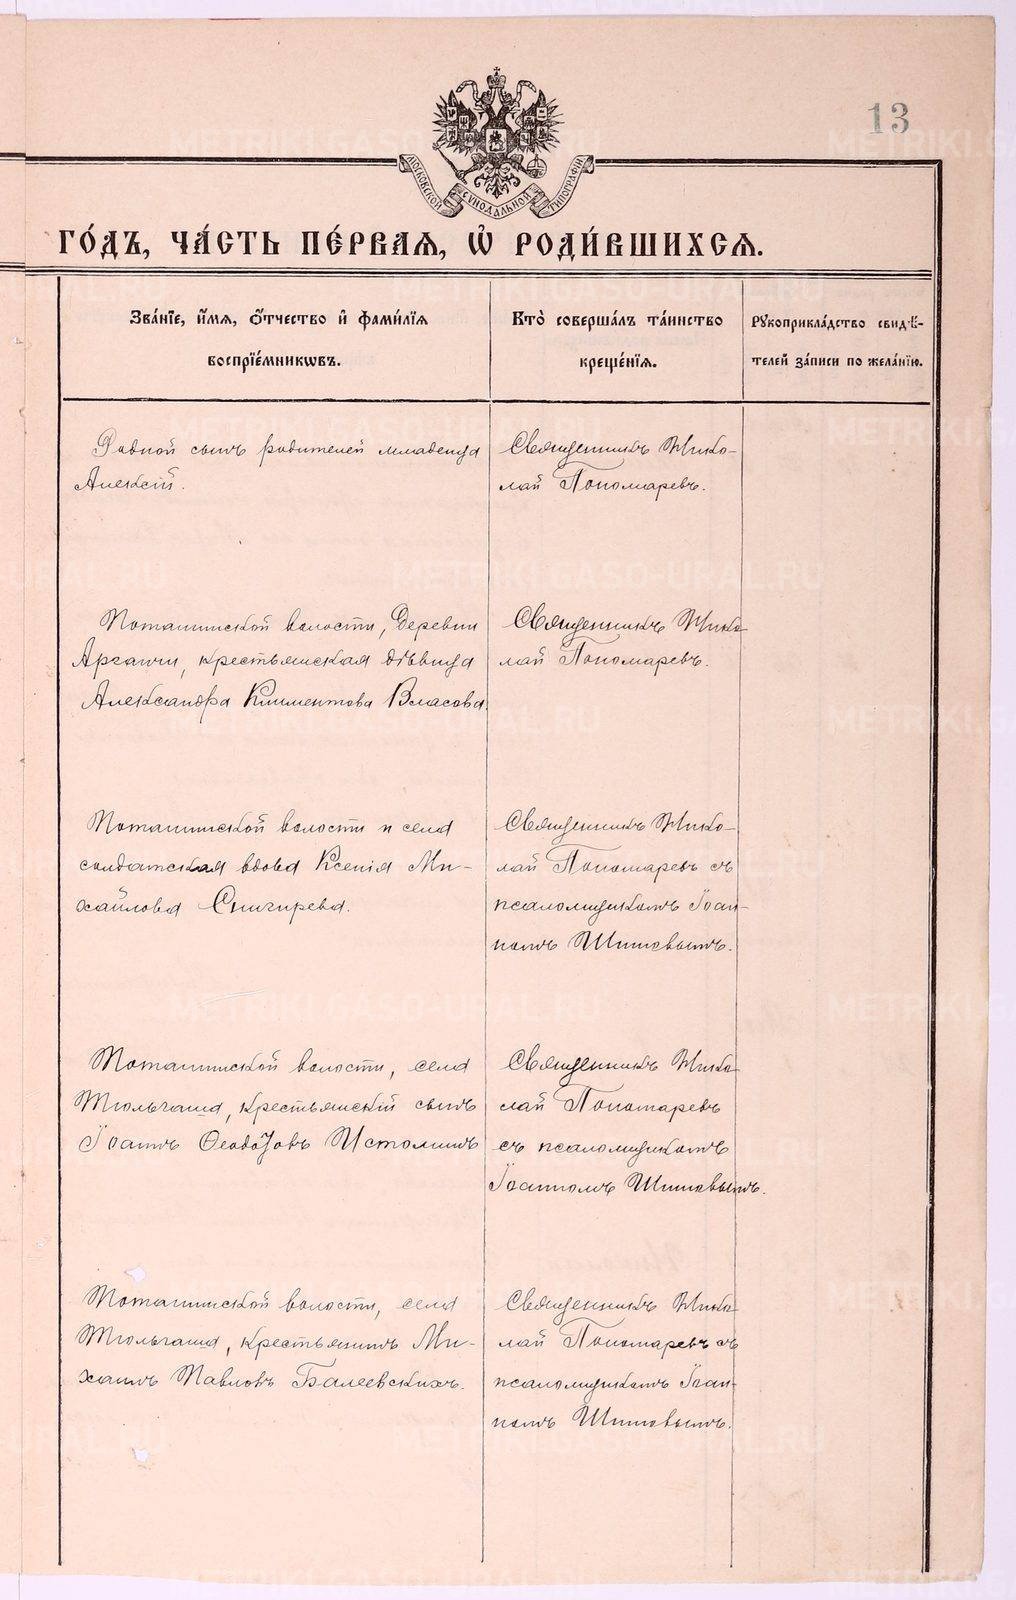 13
МОСКОВСКОЙ СѴНОДАЛЬНОЙ ТИПОГРАФІИ
ГО́ДЪ, ЧА́СТЬ ПЕ́РВАѦ, Ѡ҆ РОДИ́ВШИХСѦ.
Зва́нїе, и҆́мѧ, ѻ҆́тчество и҆ фами́лїѧ
воспрїе́мникѡвъ.
Кто̀ соверша́лъ та́инство
креще́нїѧ.
Рꙋкоприкла́дство свидѣ́-
телей за́писи по жела́нїю.
Родной сынъ родителей младенца
Алексій.
Священникъ Нико-
лай Пономаревъ.
Поташинской волости, Деревни
Арганчи, крестьянская дѣвица
Александра Климентова Власова.
Священникъ Нико
лай Пономаревъ.
Поташинской волости и села
солдатская вдова Ксенія Ми-
хайлова Снигирева.
Священникъ Нико-
лай Пономаревъ съ
псаломщикомъ Іоан-
номъ Шитовымъ.
Поташинской волости, села
Тюльгаша, крестьянскій сынъ
Іоаннъ Ѳеодотовъ Истоминъ
Священникъ Нико
лай Пономаревъ
съ псаломщикомъ
Іоанномъ Шитовымъ.
Поташинской волости, села
Тюльгаша, крестьянинъ Ми-
хаилъ Павловъ Балеевскихъ.
Священникъ Нико
лай Пономаревъ съ
псаломщикомъ Іоан-
номъ Шитовымъ.
METRIKI.GASO-URAL.RU